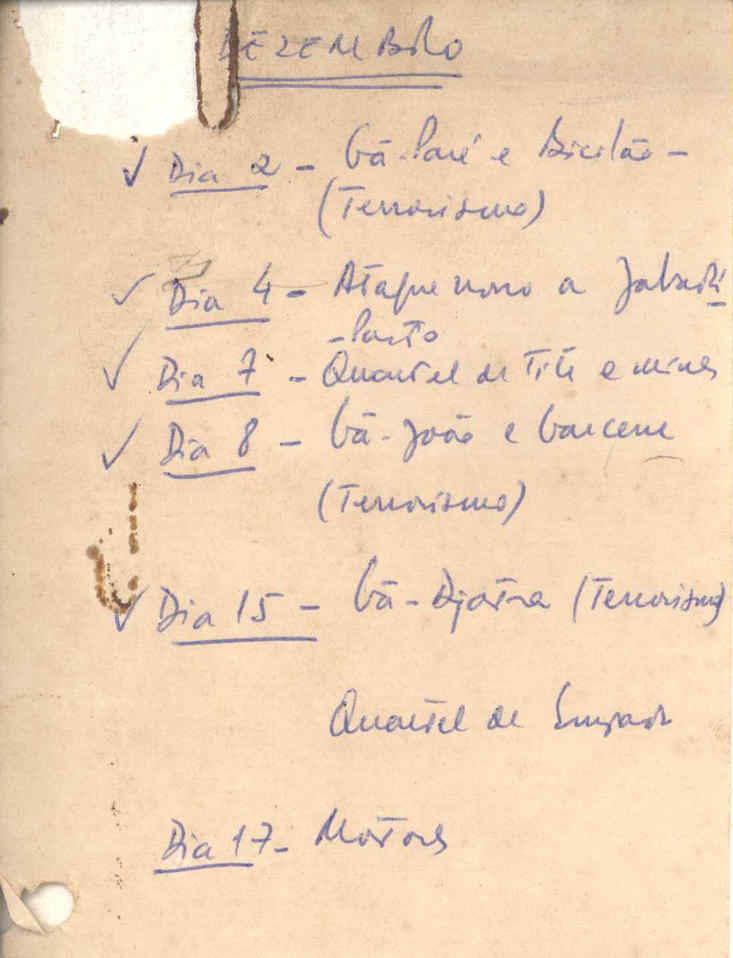 DEZEMBRO
✓ Dia 2 - Gã-Paré e Bicilão -
(Terrorismo)
✓ Dia 4 - Ataque nosso a Jabadá
- Porto
✓ Dia 7 - Quartel de Tite e minas
✓ Dia 8 - Gã-João e Garcene
(Terrorismo)
✓ Dia 15 - Gã-Djatra (Terrorismo)
Quartel de
Dia 17 - Motores